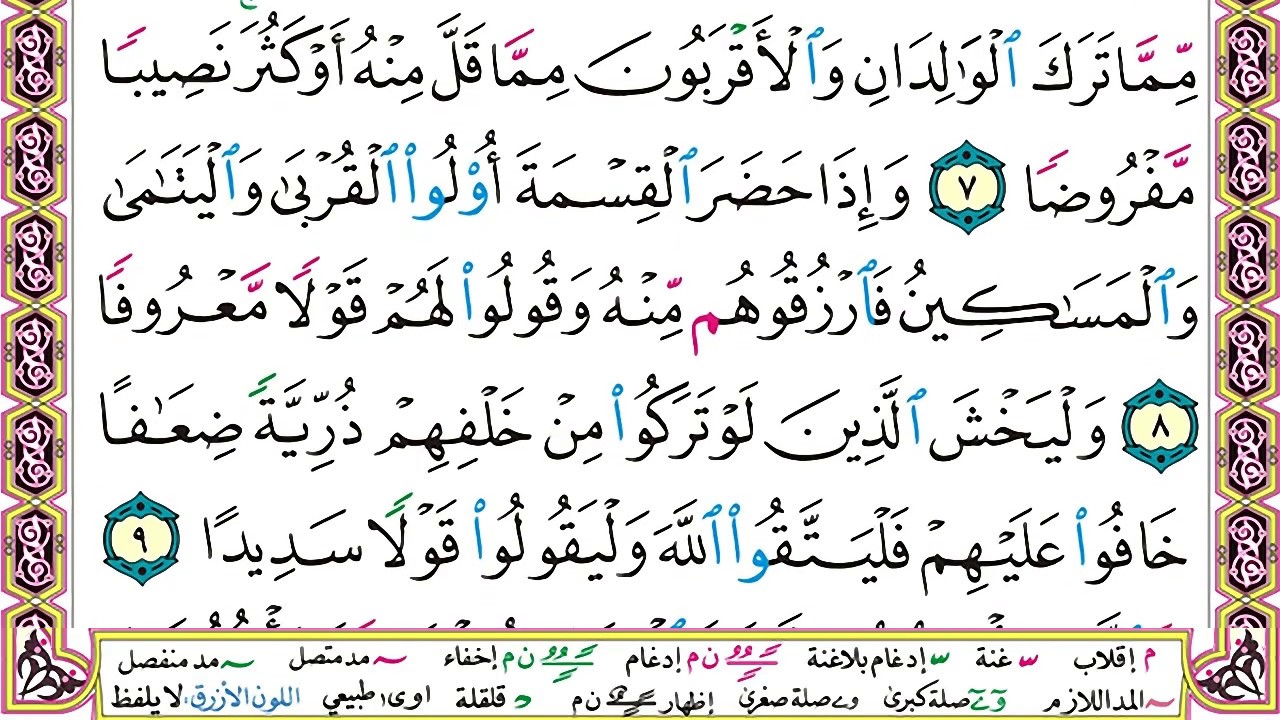 مِّمَّا تَرَكَ ٱلْوَٰلِدَانِ وَٱلْأَقْرَبُونَ مِمَّا قَلَّ مِنْهُ أَوْ كَثُرَ نَصِيبًا
مَّفْرُوضًا ٧ وَإِذَا حَضَرَ ٱلْقِسْمَةَ أُو۟لُوا۟ ٱلْقُرْبَىٰ وَٱلْيَتَٰمَىٰ
وَٱلْمَسَٰكِينُ فَٱرْزُقُوهُم مِّنْهُ وَقُولُوا۟ لَهُمْ قَوْلًا مَّعْرُوفًا
٨ وَلْيَخْشَ ٱلَّذِينَ لَوْ تَرَكُوا۟ مِنْ خَلْفِهِمْ ذُرِّيَّةً ضِعَٰفًا
خَافُوا۟ عَلَيْهِمْ فَلْيَتَّقُوا۟ ٱللَّهَ وَلْيَقُولُوا۟ قَوْلًا سَدِيدًا ٩
م إقلاب س غنة س إدغام بلاغنة ن م إدغام ن م إخفاء مد متصل مد منفصل
المد اللازم صلة كبرى صلة صغرى ن م إظهار د قلقلة اوى طبيعي اللون الأزرق: لا يلفظ